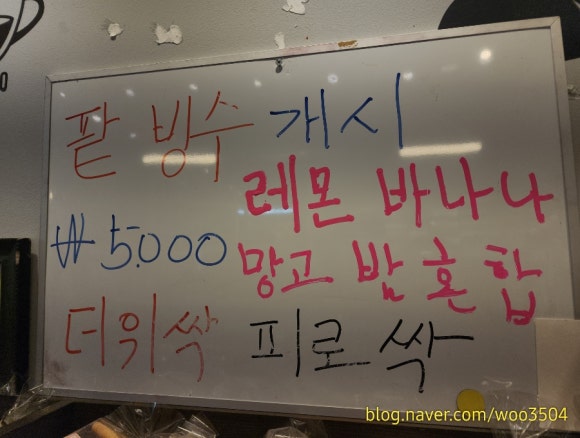 팥 빙수 개시
레몬 바나나
₩5.000
망고 밤 혼합
더위싹 피로싹
blog.naver.com/woo3504